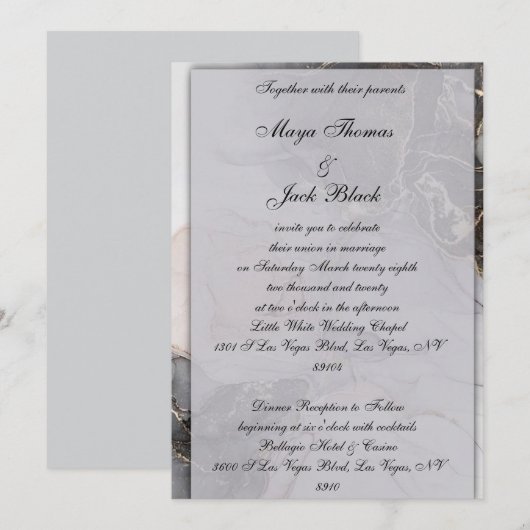 Together with their parents
Maya Thomas
&
Jack Black
invite you to celebrate
their union in marriage
on Saturday March twenty eighth
two thousand and twenty
at two o'clock in the afternoon
Little White Wedding Chapel
1301 S Las Vegas Blvd, Las Vegas, NV
89104
Dinner Reception to Follow
beginning at six o'clock with cocktails
Bellagio Hotel & Casino
3600 S Las Vegas Blvd, Las Vegas, NV
8910